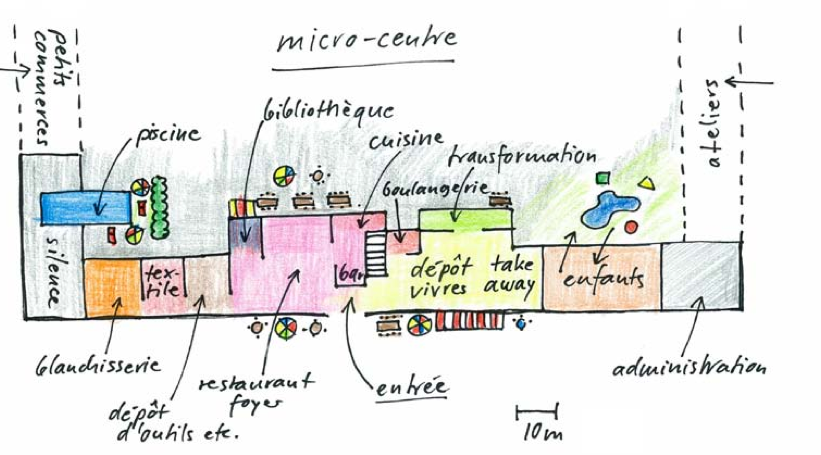 micro-centre
petits
commerces
ateliers
bibliothèque
piscine
cuisine
transformation
boulangerie
silence
tex-
tile
bar
dépôt
vivres
take
away
enfants
blanchisserie
dépôt
d'outils etc.
restaurant
foyer
entrée
administration
10m